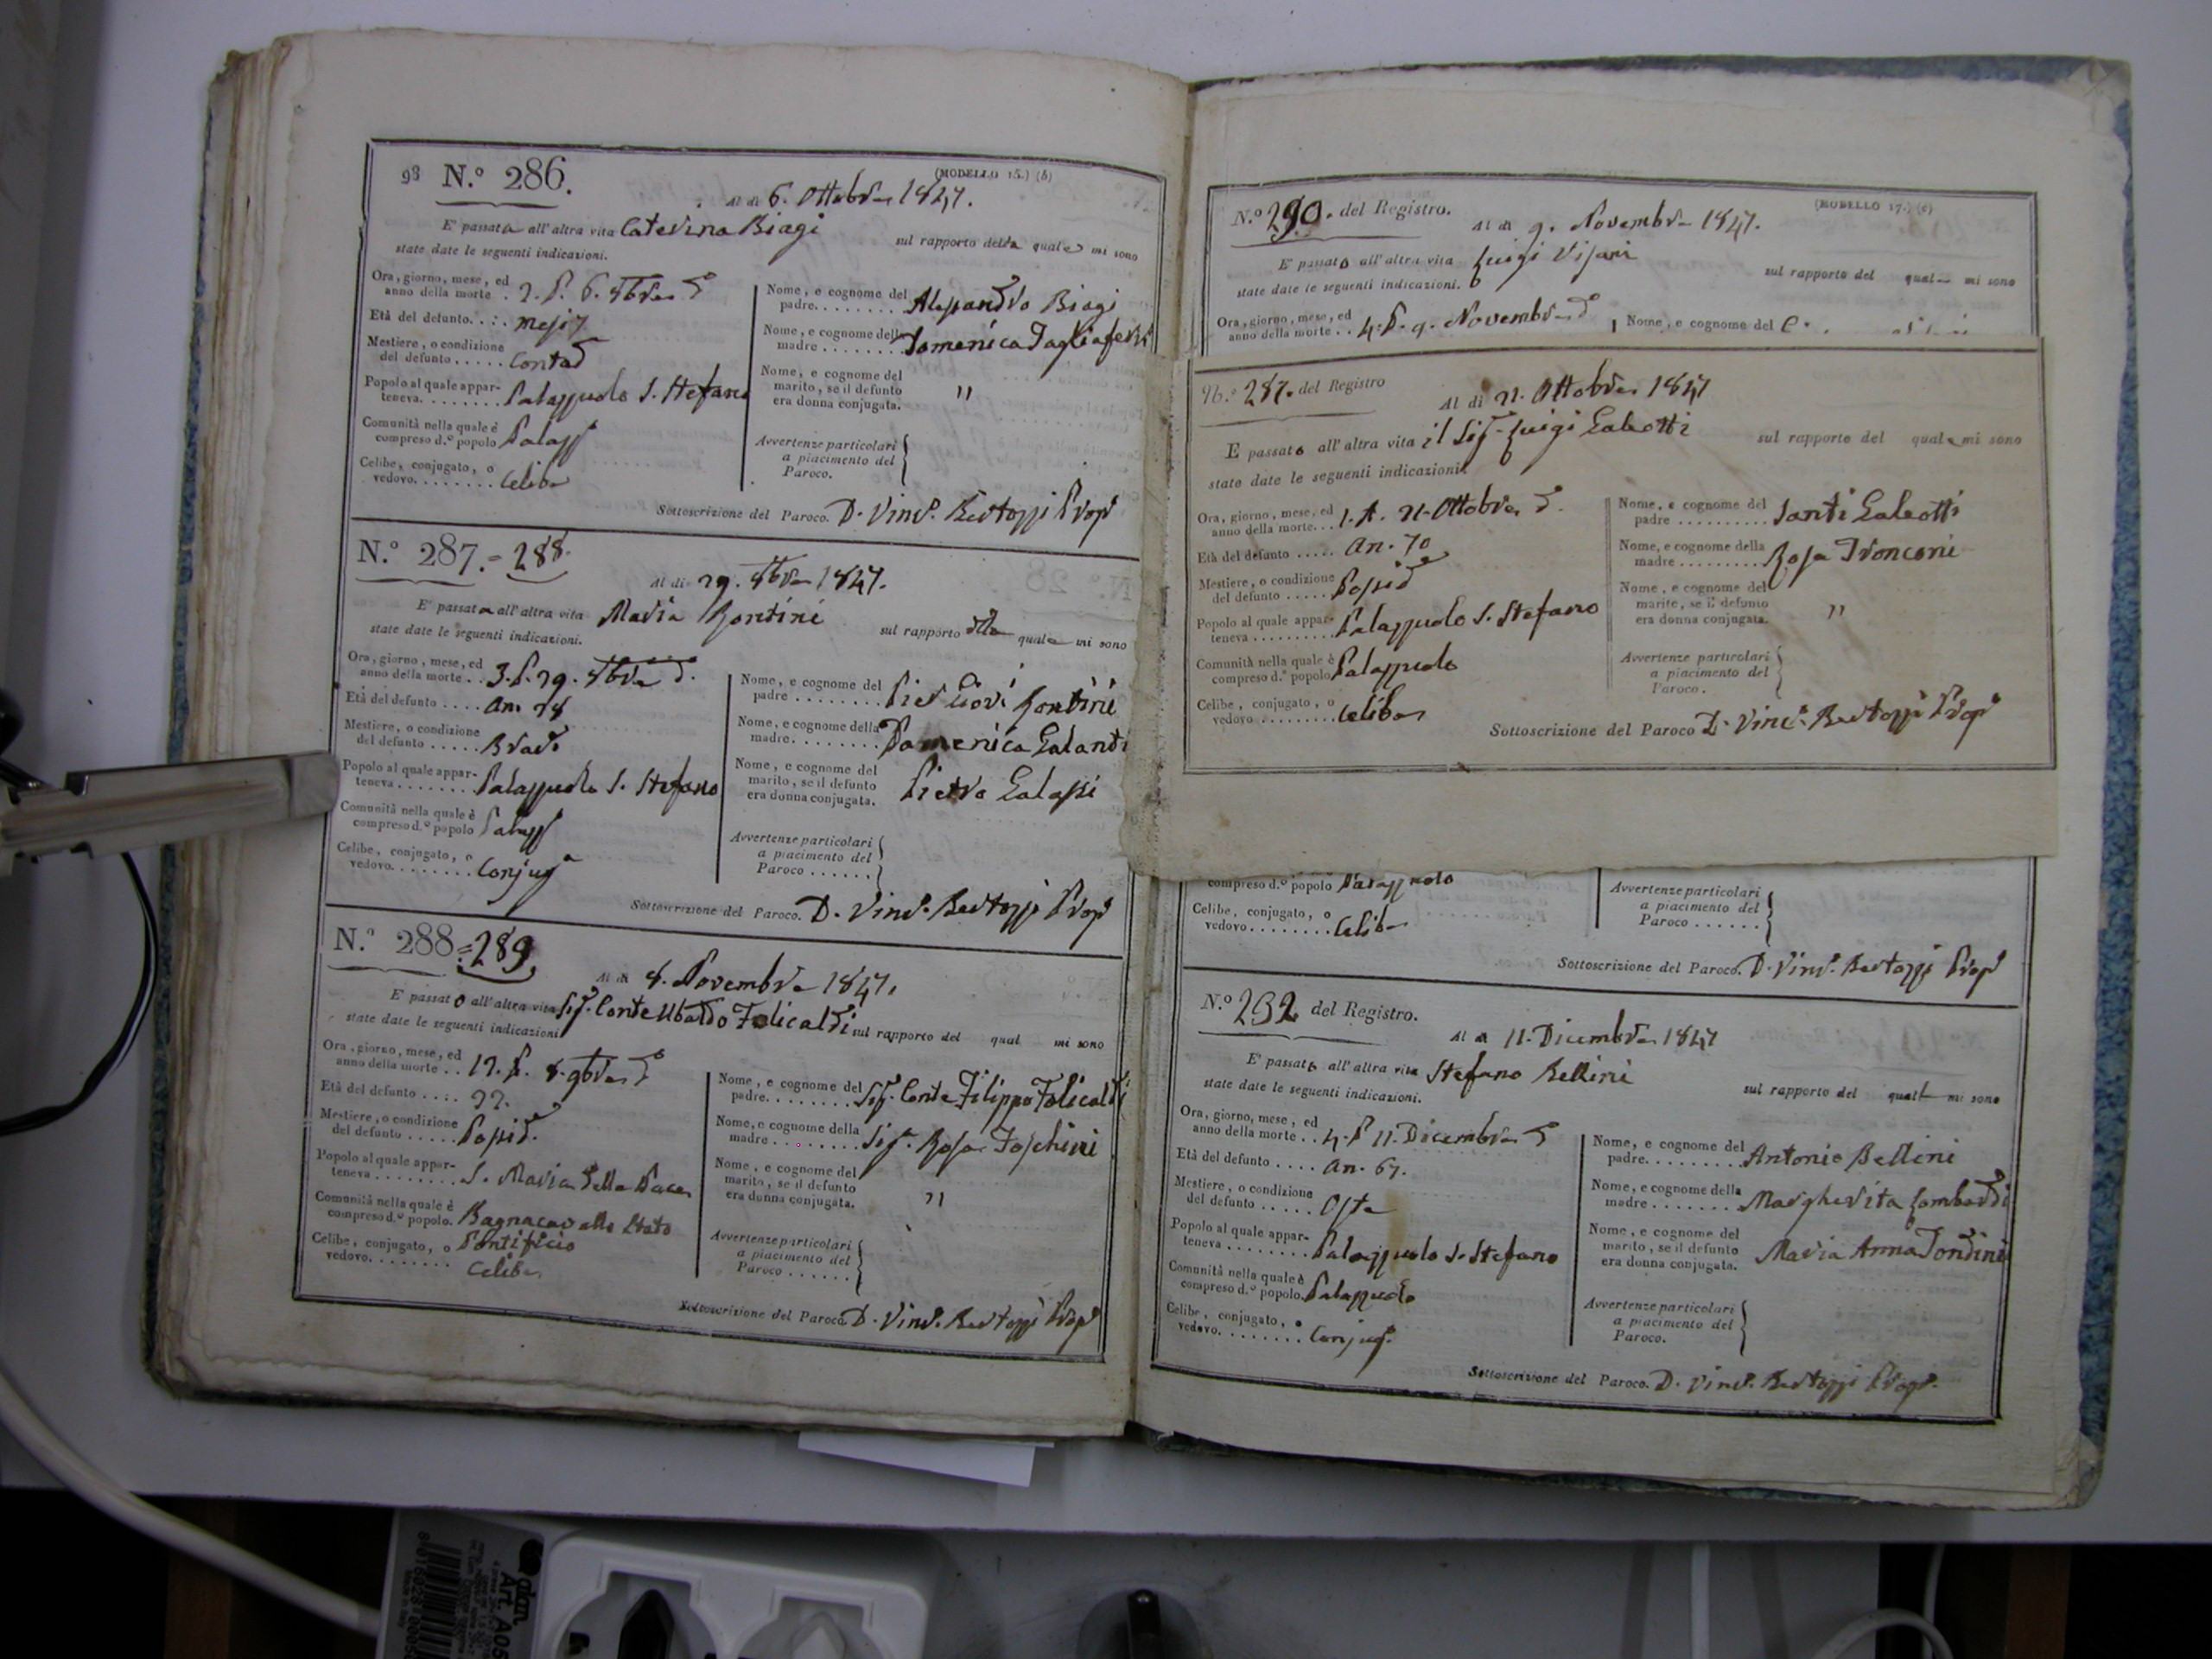 98 N.º 286.
(MODELLO 15.) (b)
Al dì 6. Ottobre 1847.
E' passata all'altra vita Caterina Biagi sul rapporto della quale mi sono
state date le seguenti indicazioni.
Ora, giorno, mese, ed
anno della morte . 2. P. 6. 8bre d.º
Età del defunto. . . . mesi 7
Mestiere, o condizione
del defunto . . . . . Contad
Popolo al quale appar-
teneva. . . . . . . . Palazzuolo S. Stefano
Comunità nella quale è
compreso d.º popolo Palazz
Celibe, conjugato, o
vedovo. . . . . . . . Celibe
Nome, e cognome del
padre. . . . . . . . Alessandro Biagi
Nome, e cognome della
madre . . . . . . . . Domenica Tagliaferri
Nome, e cognome del
marito, se il defunto
era donna conjugata. "
Avvertenze particolari
a piacimento del
Paroco.
Sottoscrizione del Paroco. D. Vinc. Bertozzi Prop
N.º 287. = 288.
Al dì 29. 8bre 1847.
E' passata all'altra vita Maria Rontini
sul rapporto della quale mi sono
state date le seguenti indicazioni.
Ora, giorno, mese, ed
anno della morte . . 3. P. 29. 8bre d.
Età del defunto . . . . an. 78
Mestiere, o condizione
del defunto . . . . . Brac
Popolo al quale appar-
teneva. . . . . . . . Palazzuolo S. Stefano
Comunità nella quale è
compreso d.º popolo Palazz
Celibe, conjugato, o
vedovo. . . . . . . . Conjug
Nome, e cognome del
padre . . . . . . . . Pier Giov Rontini
Nome, e cognome della
madre. . . . . . . . Domenica Galanti
Nome, e cognome del
marito, se il defunto
era donna conjugata. Pietro Galassi
Avvertenze particolari
a piacimento del
Paroco . . . . . .
Sottoscrizione del Paroco. D. Vinc. Bertozzi Prop
N.º 288 = 289
Al dì 8. Novembre 1847.
E' passato all'altra vita Sig. Conte Ubaldo Folicaldi sul rapporto del qual mi sono
state date le seguenti indicazioni
Ora, giorno, mese, ed
anno della morte . . 12. P. 8. 9bre d.º
Età del defunto . . . . 22.
Mestiere, o condizione
del defunto . . . . . Possid.
Popolo al quale appar-
teneva . . . . . . . . S. Maria della Pace
Comunità nella quale è
compreso d.º popolo. Bagnacavallo Stato
Pontificio
Celibe, conjugato, o
vedovo. . . . . . . . Celibe
Nome, e cognome del
padre. . . . . . . . Sig. Conte Filippo Folicaldi
Nome, e cognome della
madre . . . . . . . . Sig. Rosa Foschini
Nome, e cognome del
marito, se il defunto
era donna conjugata. "
Avvertenze particolari
a piacimento del
Paroco . . . . . .
Sottoscrizione del Paroco D. Vinc. Bertozzi Prop
N.º 290. del Registro.
(MODELLO 17.) (c)
Al dì 9. Novembre 1847.
E' passato all'altra vita Luigi Visani
sul rapporto del quale mi sono
state date le seguenti indicazioni.
Ora, giorno, mese, ed
anno della morte . . 4. P. 9. Novembre d.º
Nome, e cognome del
N.º 287. del Registro
Al dì 21. Ottobre 1847
E passato all'altra vita il Sig. Luigi Galeotti
sul rapporto del quale mi sono
state date le seguenti indicazioni
Ora, giorno, mese, ed
anno della morte. . . 1. A. 21. Ottobre d.
Età del defunto . . . . . an. 70
Mestiere, o condizione
del defunto . . . . . Possid
Popolo al quale appar-
teneva . . . . . . . . . Palazzuolo S. Stefano
Comunità nella quale è
compreso d.º popolo Palazzuolo
Celibe, conjugato, o
vedovo . . . . . . . . . Celibe
Nome, e cognome del
padre . . . . . . . . . . Santi Galeotti
Nome, e cognome della
madre . . . . . . . . . Rosa Tronconi
Nome, e cognome del
marito, se il defunto
era donna conjugata. "
Avvertenze particolari
a piacimento del
Paroco .
Sottoscrizione del Paroco D. Vinc. Bertozzi Prop
compreso d.º popolo Palazzuolo
Celibe, conjugato, o
vedovo. . . . . . . . Celibe
Avvertenze particolari
a piacimento del
Paroco . . . . . .
Sottoscrizione del Paroco. D. Vinc. Bertozzi Prop
N.º 292 del Registro.
Al dì 11. Dicembre 1847
E' passato all'altra vita Stefano Bellini
sul rapporto del quale mi sono
state date le seguenti indicazioni.
Ora, giorno, mese, ed
anno della morte . . 4. P 11. Dicembre d
Età del defunto . . . . an. 67.
Mestiere, o condizione
del defunto . . . . . Oste
Popolo al quale appar-
teneva . . . . . . . . Palazzuolo S. Stefano
Comunità nella quale è
compreso d.º popolo. Palazzuolo
Celibe, conjugato, o
vedovo. . . . . . . . Conjug.
Nome, e cognome del
padre. . . . . . . . . Antonio Bellini
Nome, e cognome della
madre . . . . . . . . Margherita Lombardi
Nome, e cognome del
marito, se il defunto
era donna conjugata. Maria Anna Tondini
Avvertenze particolari
a piacimento del
Paroco.
Sottoscrizione del Paroco. D. Vinc. Bertozzi Prop.
adam
Art. A05